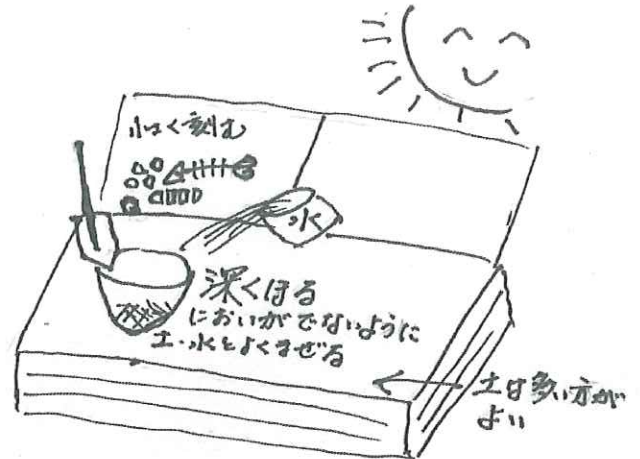 小さく刻む
水
深くほる
においがでないように
土・水とよくまぜる
土は多い方が
よい